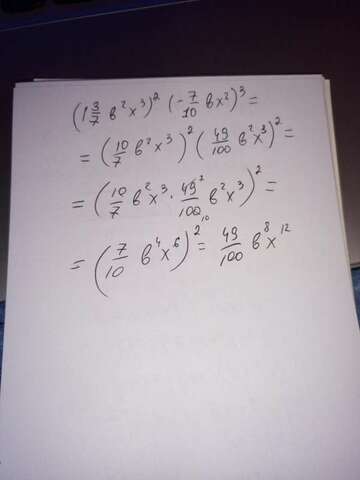 (1 3/7 в² x³)² (- 7/10 вx²)³ =
= (10/7 в² x³)² (49/100 в² x³)² =
= (10/7 в² x³ · 49⁷/100₁₀ в² x³)² =
= (7/10 в⁴ x⁶)² = 49/100 в⁸ x¹²